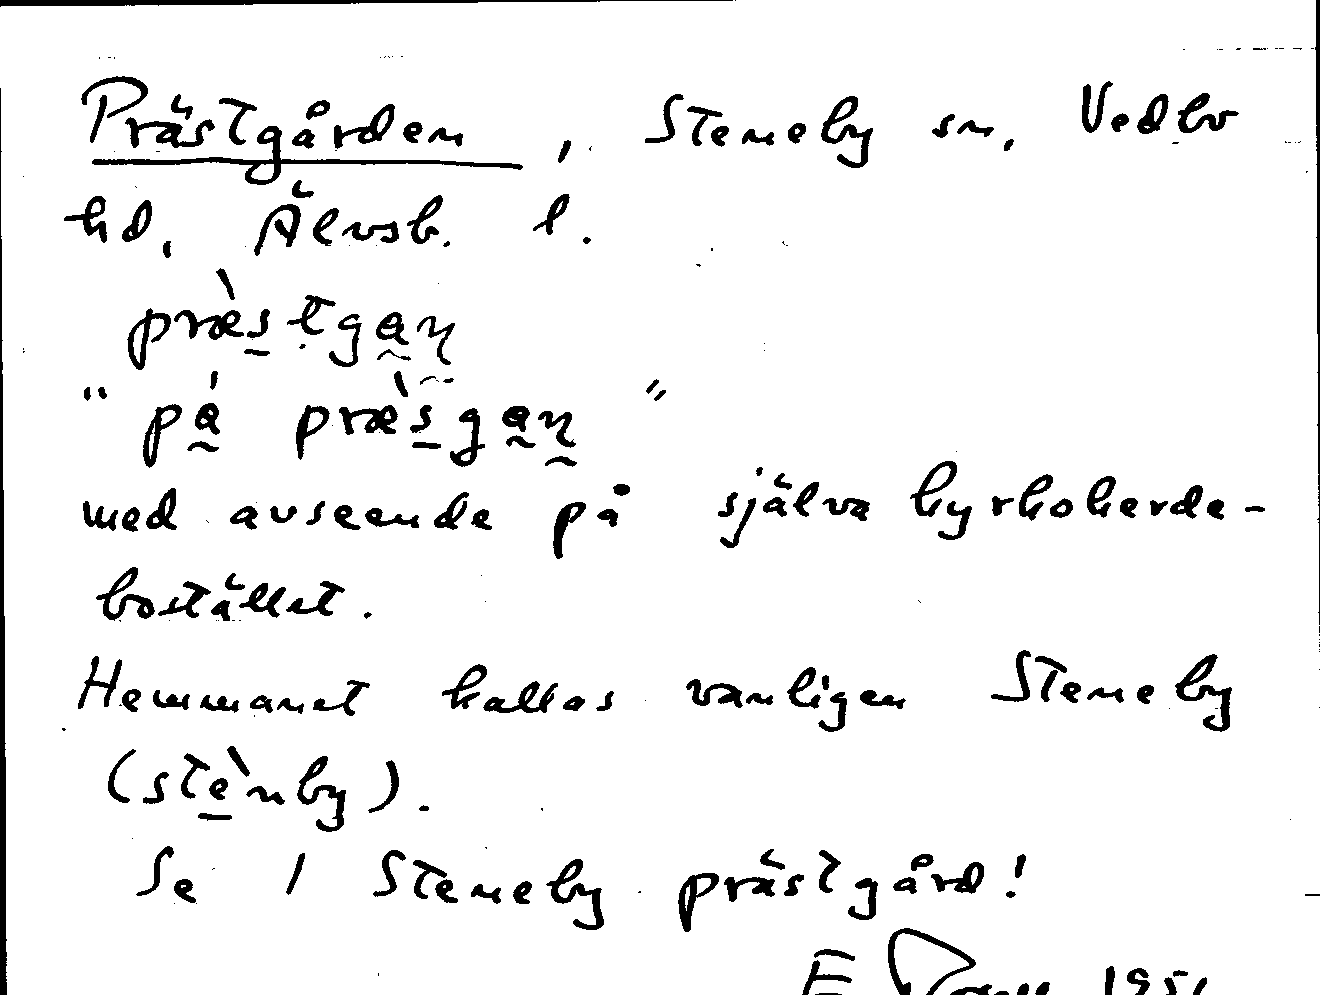 Prästgården, Steneby sn, Vedbo
hd, Älvsb. l.
præ̀s̱tga̰ṇ
"pá̰ præ̀s̱ga̰ṇ̰"
med avseende på själva kyrkoherde-
bostället.
Hemmanet kallas vanligen Steneby
(stè̱nby).
Se 1 Steneby prästgård!
E